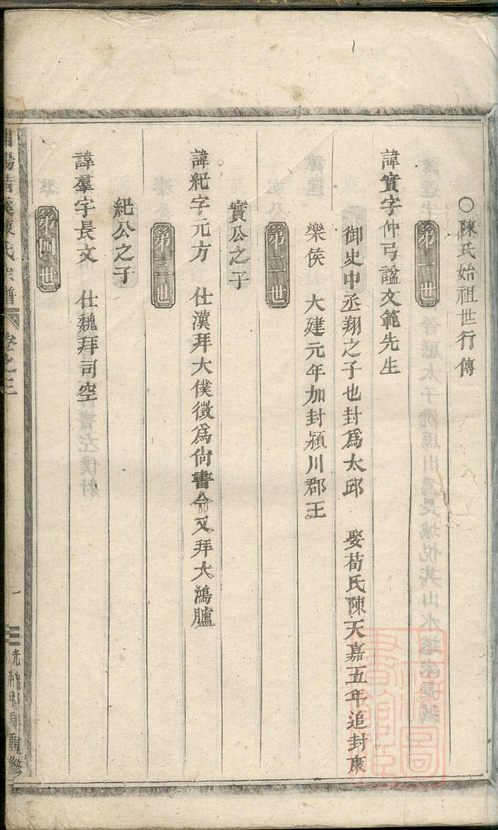 ○陳氏始祖世行傳
第一世
諱寔字仲弓謚文範先生
御史中丞翔之子也封爲太邱 娶荀氏陳天嘉五年追封康
樂侯 大建元年加封潁川郡王
第二世
寔公之子
諱紀字元方 仕漢拜大僕徵爲尙書令又拜大鴻臚
第三世
紀公之子
諱羣字長文 仕魏拜司空
第四世
陳氏宗譜
卷之三
一
重修